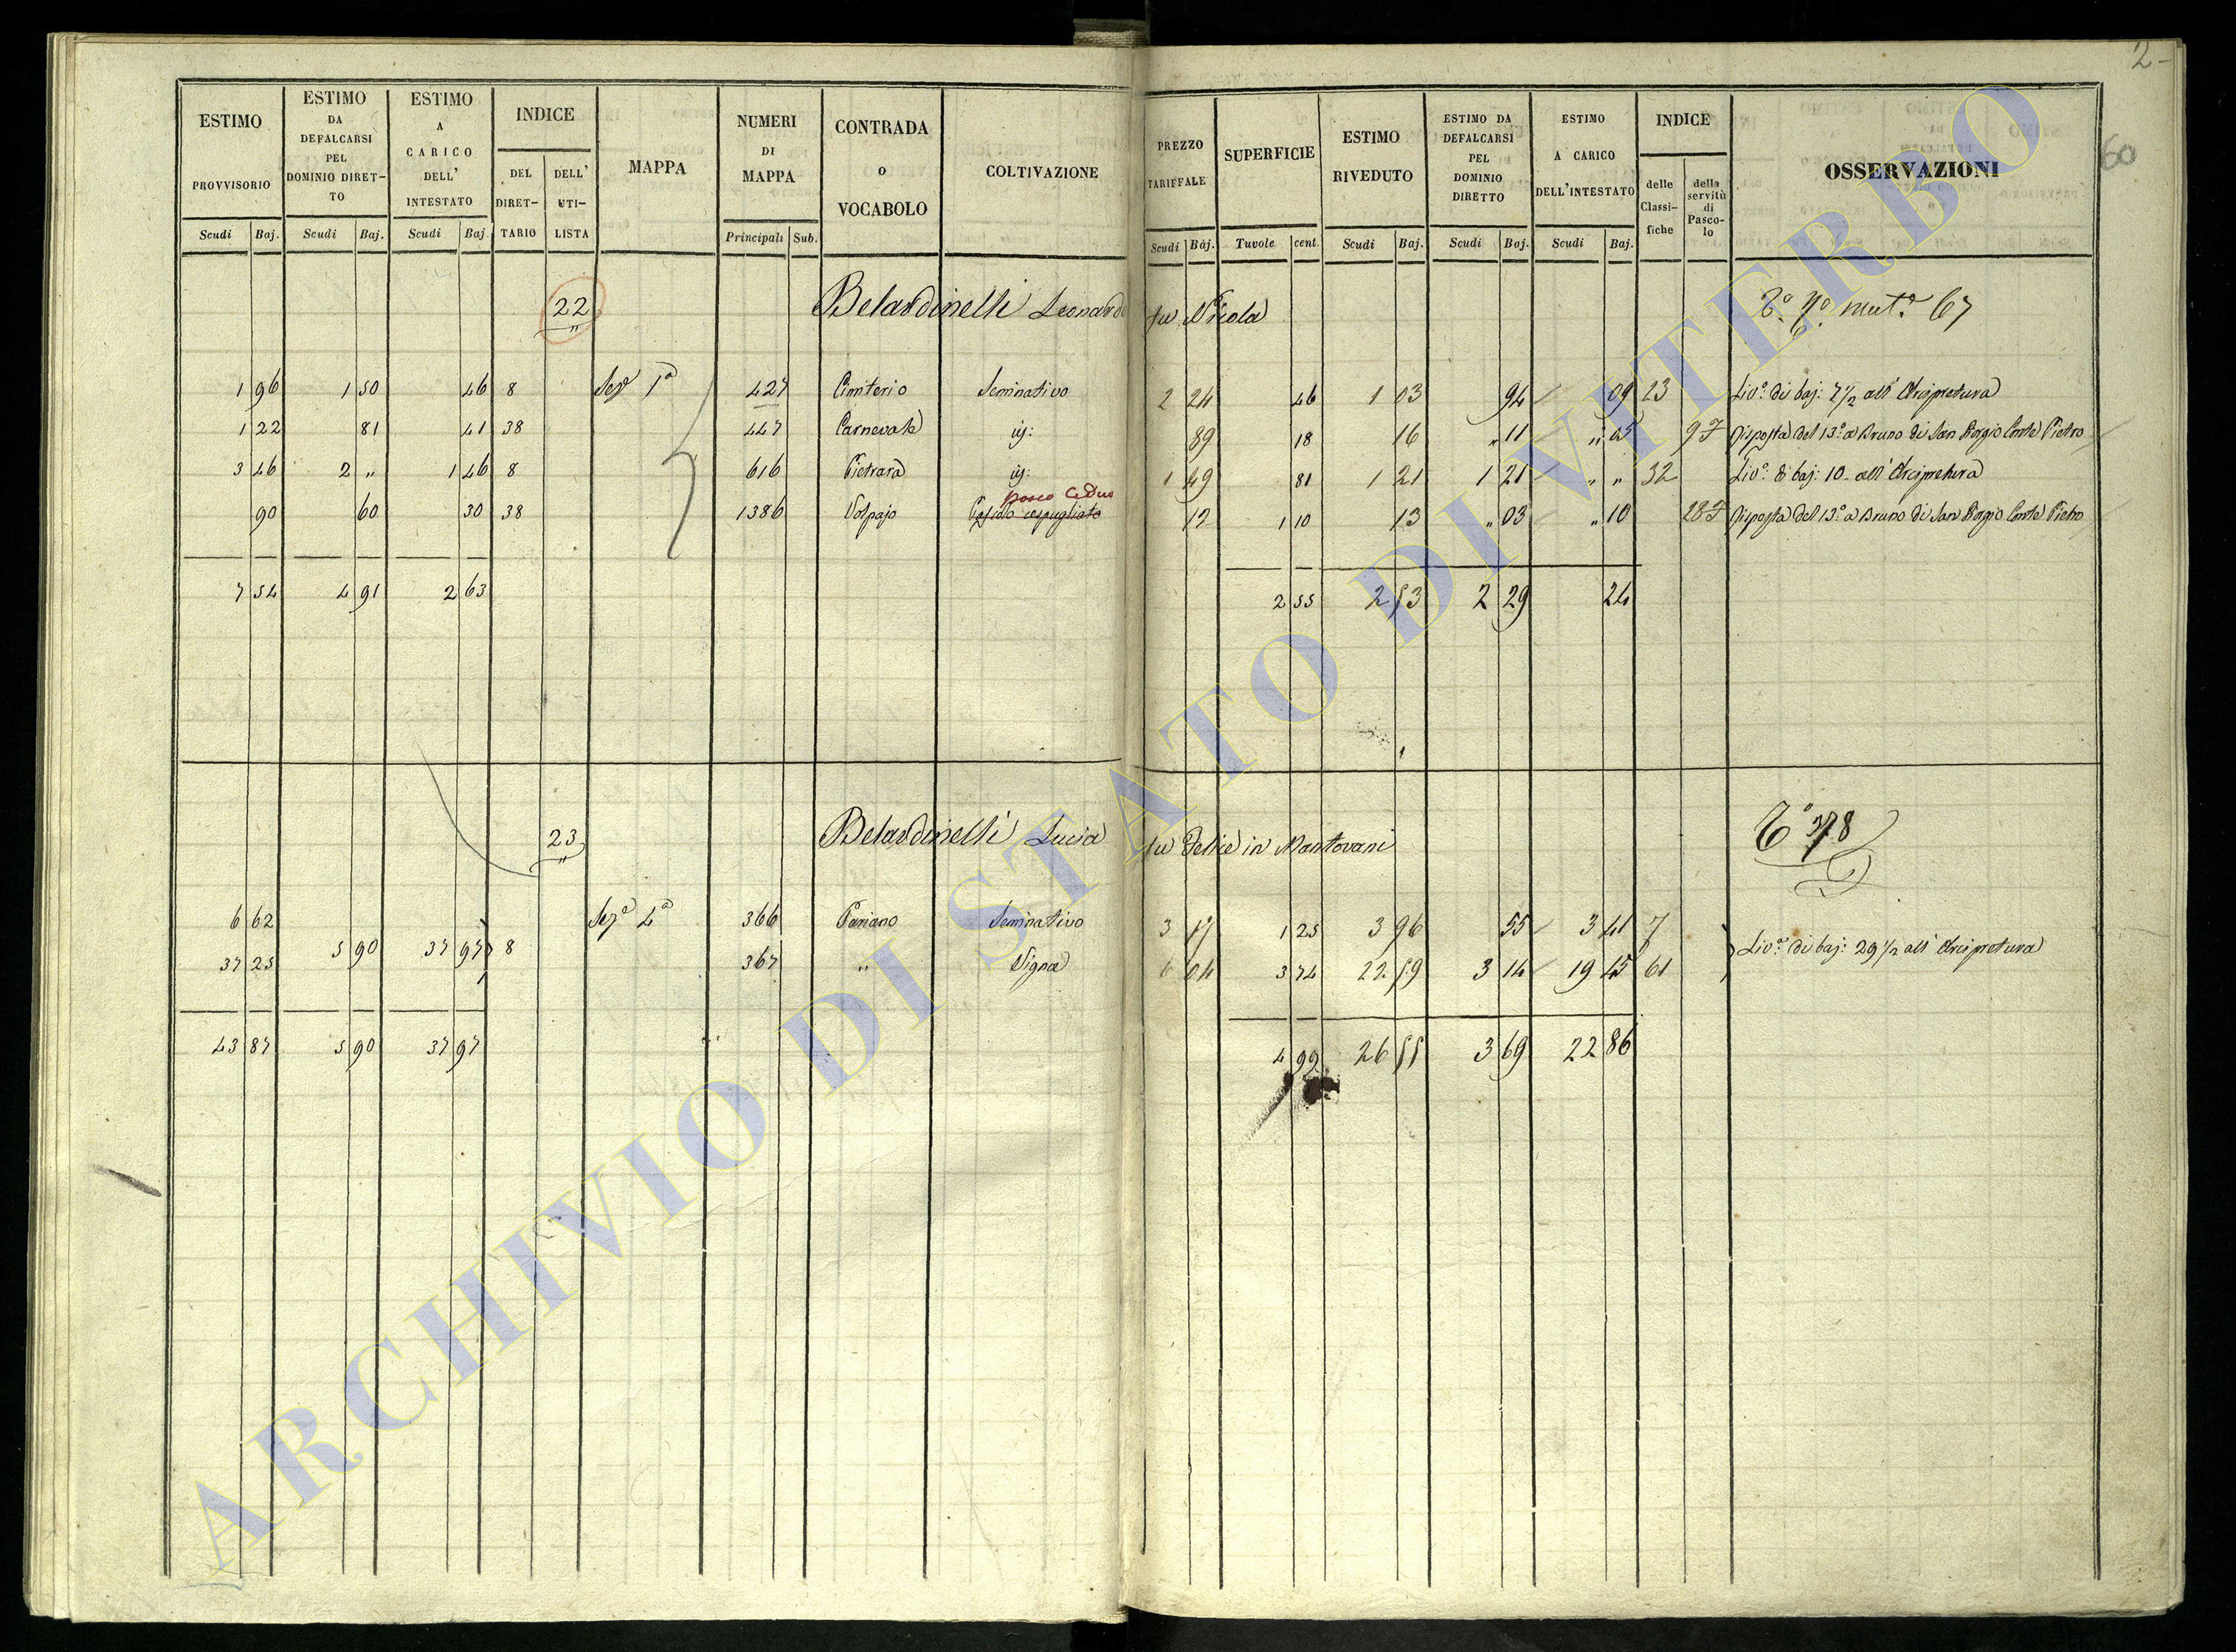 2-
60
ESTIMO PROVVISORIO | ESTIMO DA DEFALCARSI PEL DOMINIO DIRETTO | ESTIMO A CARICO DELL' INTESTATO | INDICE DEL DIRETTARIO | DELL' UTILISTA | MAPPA | NUMERI DI MAPPA | CONTRADA O VOCABOLO | COLTIVAZIONE | PREZZO TARIFFALE | SUPERFICIE | ESTIMO RIVEDUTO | ESTIMO DA DEFALCARSI PEL DOMINIO DIRETTO | ESTIMO A CARICO DELL'INTESTATO | INDICE delle Classifiche | della servitù di Pascolo | OSSERVAZIONI
Scudi Baj. | Scudi Baj. | Scudi Baj. | Principali Sub. | Scudi Baj. | Tavole cent. | Scudi Baj. | Scudi Baj. | Scudi Baj.
22 Belardinelli Leonardo fu Nicola mut.e 67
1 96 1 50 46 8 Sez.e 1a 427 Cimiterio Seminativo 2 24 46 1 03 94 09 23 Liv.o di baj: 7 1/2 all'Arcipretura
1 22 81 41 38 447 Carnevale id: 89 18 16 " 11 " 05 9 Risposta del 13.o a Bruno di San Giorgio Conte Pietro
3 46 2 " 1 46 8 616 Pietrara id: 1 49 81 1 21 1 21 " " 32 Liv.o di baj: 10 all'Arcipretura
bosco Ceduo
90 60 30 38 1386 Volpajo Pascolo cespugliato 12 1 10 13 " 03 " 10 28 Risposta del 13.o a Bruno di San Giorgio Conte Pietro
7 54 4 91 2 63 2 55 2 53 2 29 24
23 Belardinelli Lucia fu Felice in Mantovani 378
6 62 Sez.e 4a 366 Pariano Seminativo 3 17 1 25 3 96 55 3 41 7
5 90 37 97 8 Liv.o di baj: 29 1/2 all'Arcipretura
37 25 367 " Vigna 6 04 3 74 22 59 3 14 19 45 61
43 87 5 90 37 97 4 99 26 55 3 69 22 86
ARCHIVIO DI STATO DI VITERBO